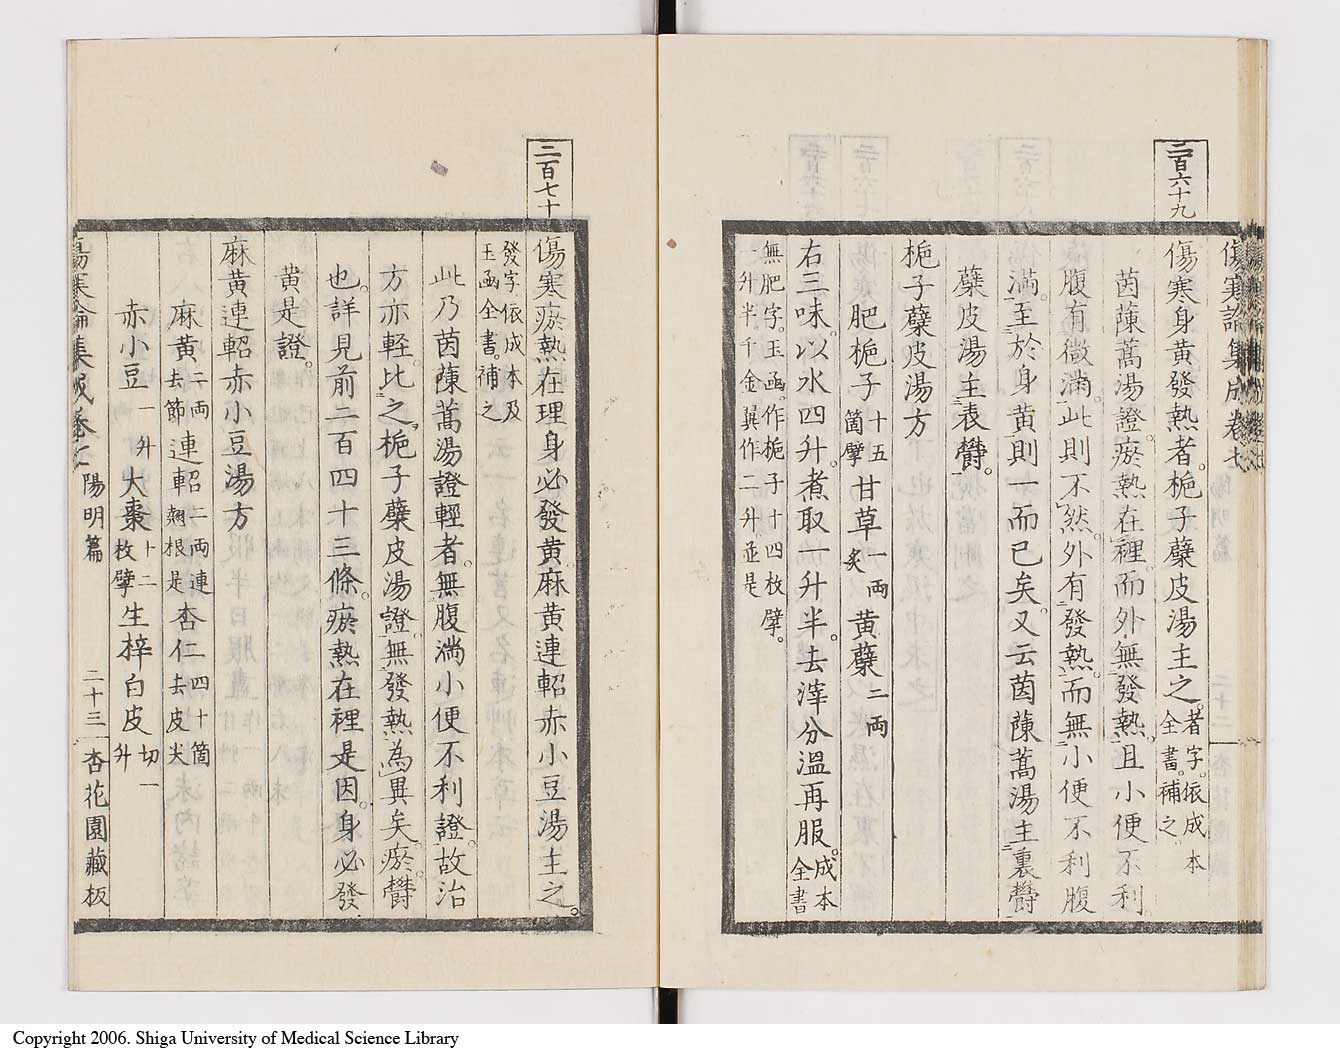 二百六十九
傷寒論集成卷七
傷寒身黃發熱者。梔子蘗皮湯主之。者字。依成本
全書。補之。
茵蔯蒿湯證。瘀熱在裡。而外無發熱。且小便不利。
腹有微滿。此則不然。外有發熱。而無小便不利腹
滿。至於身黃則一而已矣。又云茵蔯蒿湯主裏欝
蘗皮湯主表欝。
梔子蘗皮湯方
肥梔子十五箇擘 甘草一兩炙 黃蘗二兩
右三味。以水四升。煮取一升半。去滓分溫再服。成本全書
無肥字。玉函。作梔子十四枚擘。
一升半千金翼作二升並是
二百七十
傷寒瘀熱在理身必發黃麻黃連軺赤小豆湯主之。
發字依成本及
玉函全書。補之
此乃茵蔯蒿湯證輕者。無腹滿小便不利證。故治
方亦輕。比之梔子蘗皮湯證。無發熱為異矣。瘀欝
也。詳見前二百四十三條。瘀熱在裡是因。身必發
黃是證。
麻黃連軺赤小豆湯方
麻黃二兩去節 連軺二兩連翹根是 杏仁四十箇去皮尖
赤小豆一升 大棗十二枚擘 生梓白皮切一升
陽明篇 二十三 杏花園藏板
Copyright 2006. Shiga University of Medical Science Library